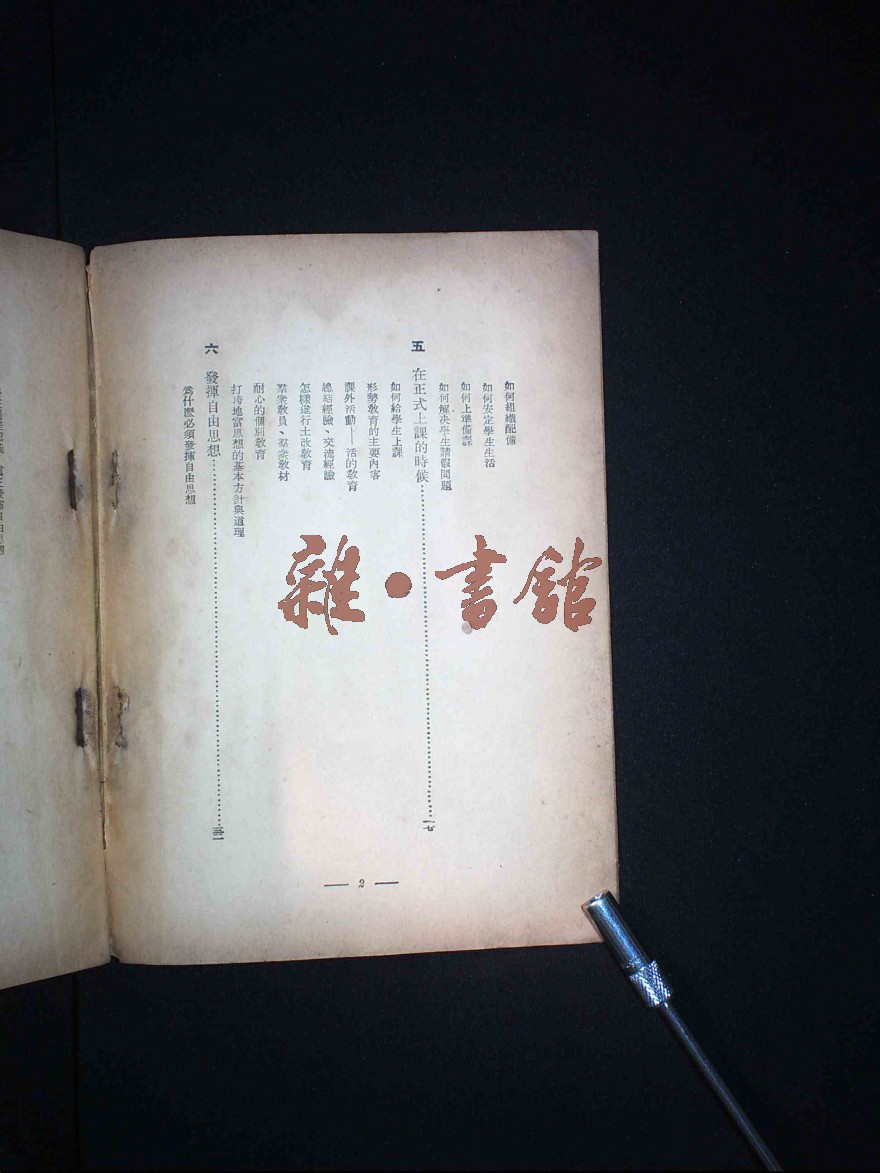 如何組織配備
如何安定學生生活
如何上準備課
如何解決學生請假問題
五 在正式上課的時候 一七
如何給學生上課
形勢敎育的主要內容
課外活動——活的敎育
總結經驗、交流經驗
怎樣進行土改敎育
羣衆敎員、羣衆敎材
耐心的個別敎育
打垮地富思想的基本方針與道理
六 發揮自由思想
爲什麽必須發揮自由思想
— 2 —
雜·書舘